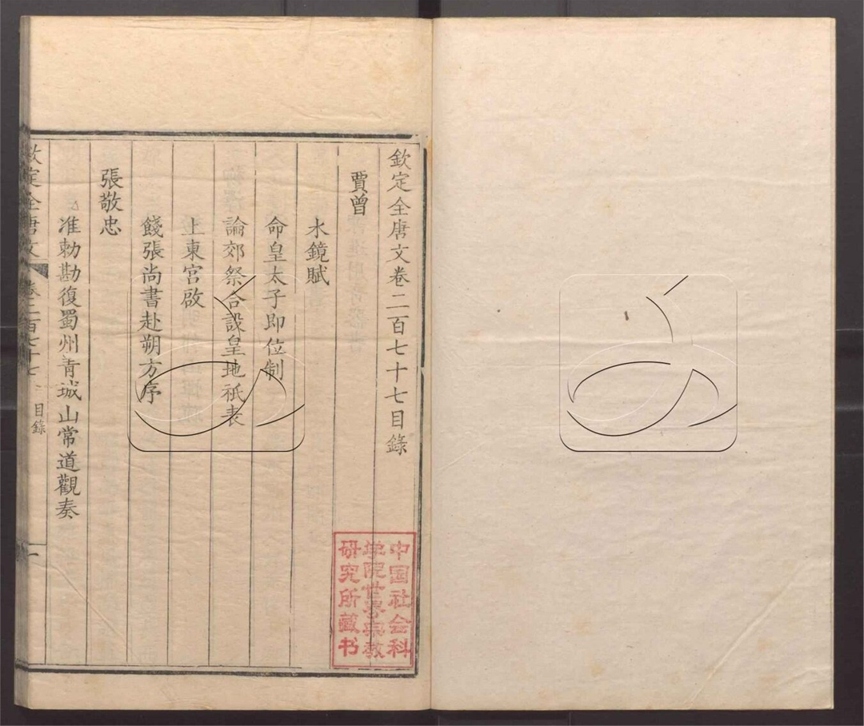 欽定全唐文卷二百七十七目錄
賈曾
水鏡賦
命皇太子即位制
論郊祭合設皇地祇表
上東宮啟
餞張尚書赴朔方序
張敬忠
准勅勘復蜀州青城山常道觀奏
欽定全唐文 卷二百七十七 目錄 一
中国社会科
学院世界宗教
研究所藏书